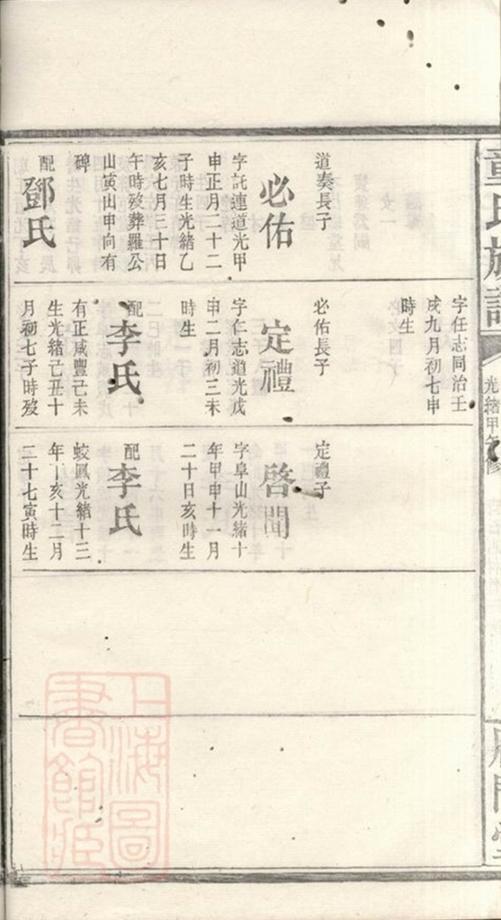 童氏族譜
光緒甲午修
道奏長子
必佑
字託連道光甲
申正月二十二
子時生光緒乙
亥七月三十日
午時歿葬羅公
山寅山申向有
碑
配
鄧氏
字任志同治壬
戌九月初七申
時生
必佑長子
定禮
字仁志道光戊
申二月初三未
時生
配
李氏
有正咸豐己未
生光緒己丑十
月初七子時歿
定禮子
啓聞
字阜山光緒十
年甲申十一月
二十日亥時生
配
李氏
蛟鳳光緒十三
年亥十二月
二十七寅時生
上海圖
書館藏